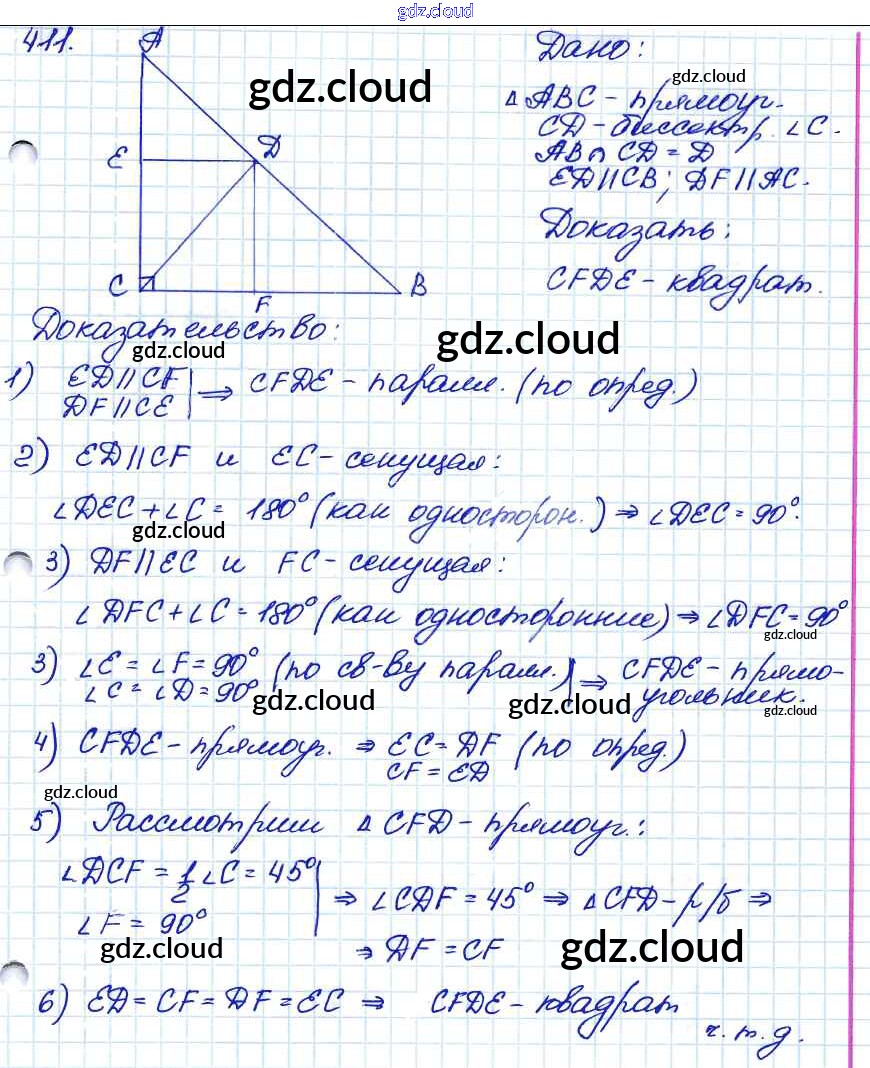 gdz.cloud
411.
A
E
D
C
F
B
gdz.cloud
Дано:
gdz.cloud
△ ABC - прямоуг.
CD - биссектр. ∠C.
AB ∩ CD = D
ED // CB; DF // AC.
Доказать:
CFDE - квадрат.
Доказательство:
gdz.cloud
gdz.cloud
1) ED // CF
DF // CE | ⇒ CFDE - паралл. (по опред.)
2) ED // CF и EC - секущая:
∠DEC + ∠C = 180° (как односторон.) ⇒ ∠DEC = 90°.
gdz.cloud
3) DF // EC и FC - секущая:
∠DFC + ∠C = 180° (как односторонние) ⇒ ∠DFC = 90°
gdz.cloud
3) ∠E = ∠F = 90° (по св-ву паралл.) | ⇒ CFDE - прямо-
∠C = ∠D = 90° угольник.
gdz.cloud
gdz.cloud
gdz.cloud
4) CFDE - прямоуг. ⇒ EC = DF (по опред.)
CF = ED
gdz.cloud
5) Рассмотрим △ CFD - прямоуг.:
∠DCF = 1/2 ∠C = 45°
∠F = 90° | ⇒ ∠CDF = 45° ⇒ △CFD - р/б ⇒
⇒ DF = CF
gdz.cloud
gdz.cloud
6) ED = CF = DF = EC ⇒ CFDE - квадрат
ч. т. д.